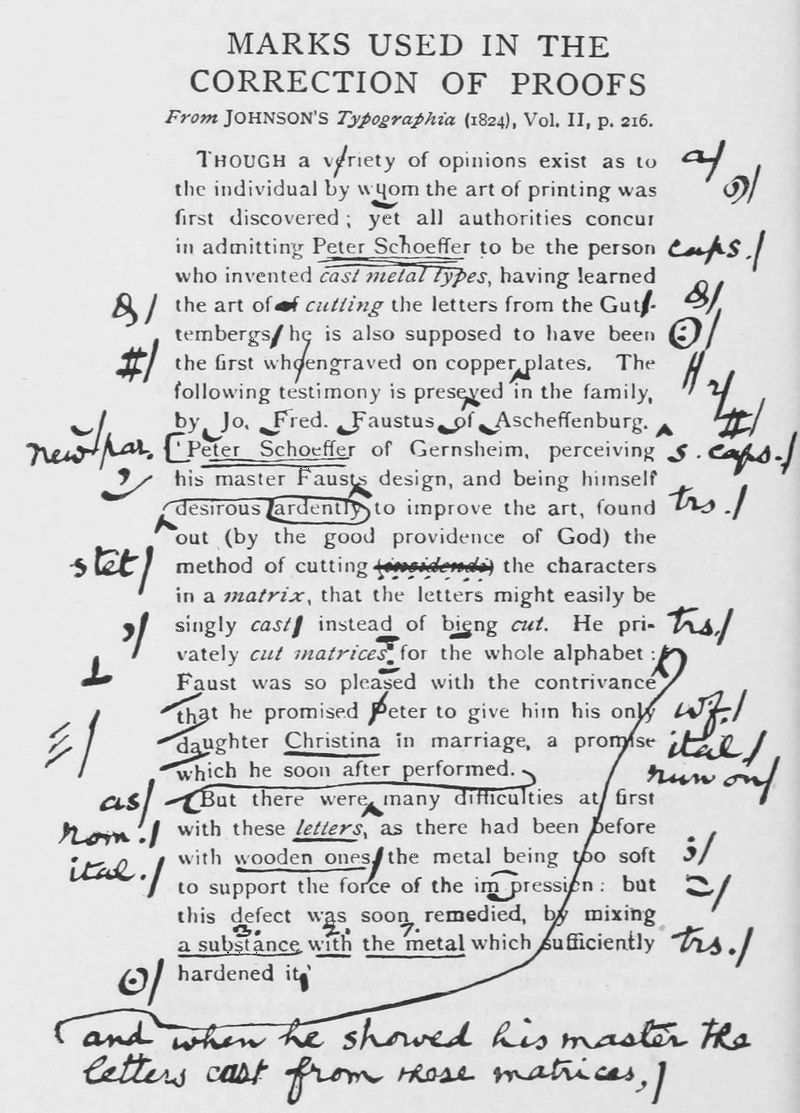 MARKS USED IN THE
CORRECTION OF PROOFS
From JOHNSON'S Typographia (1824), Vol. II, p. 216.
THOUGH a v/riety of opinions exist as to a/
the individual by wɥom the art of printing was 9/
first discovered ; yet all authorities concur
in admitting Peter Schoeffer to be the person caps./
who invented cast metal types, having learned
the art of of cutting the letters from the Gut/-
tembergs/ he is also supposed to have been ⊙/
#/ the first who/engraved on copper plates. The
following testimony is preseved in the family, r/
by Jo. Fred. Faustus of Ascheffenburg. #/
new par. [' Peter Schoeffer of Gernsheim, perceiving s. caps./
his master Fausts design, and being himself
desirous ardently to improve the art, found trs./
out (by the good providence of God) the
stet/ method of cutting (incidendi) the characters
in a matrix, that the letters might easily be
,/ singly cast/ instead of bieng cut. He pri- trs./
vately cut matrices for the whole alphabet :
Faust was so pleased with the contrivance
that he promised Peter to give him his only wf./
daughter Christina in marriage, a promise ital/
which he soon after performed. run on/
as/ But there were many difficulties at first
rom./ with these letters, as there had been before
ital./ with wooden ones/ the metal being too soft ;/
to support the force of the im pression : but
this defect was soon remedied, by mixing
3. 2. 1.
a substance with the metal which sufficiently trs./
⊙/ hardened it,'
and when he showed his master the
letters cast from these matrices,/